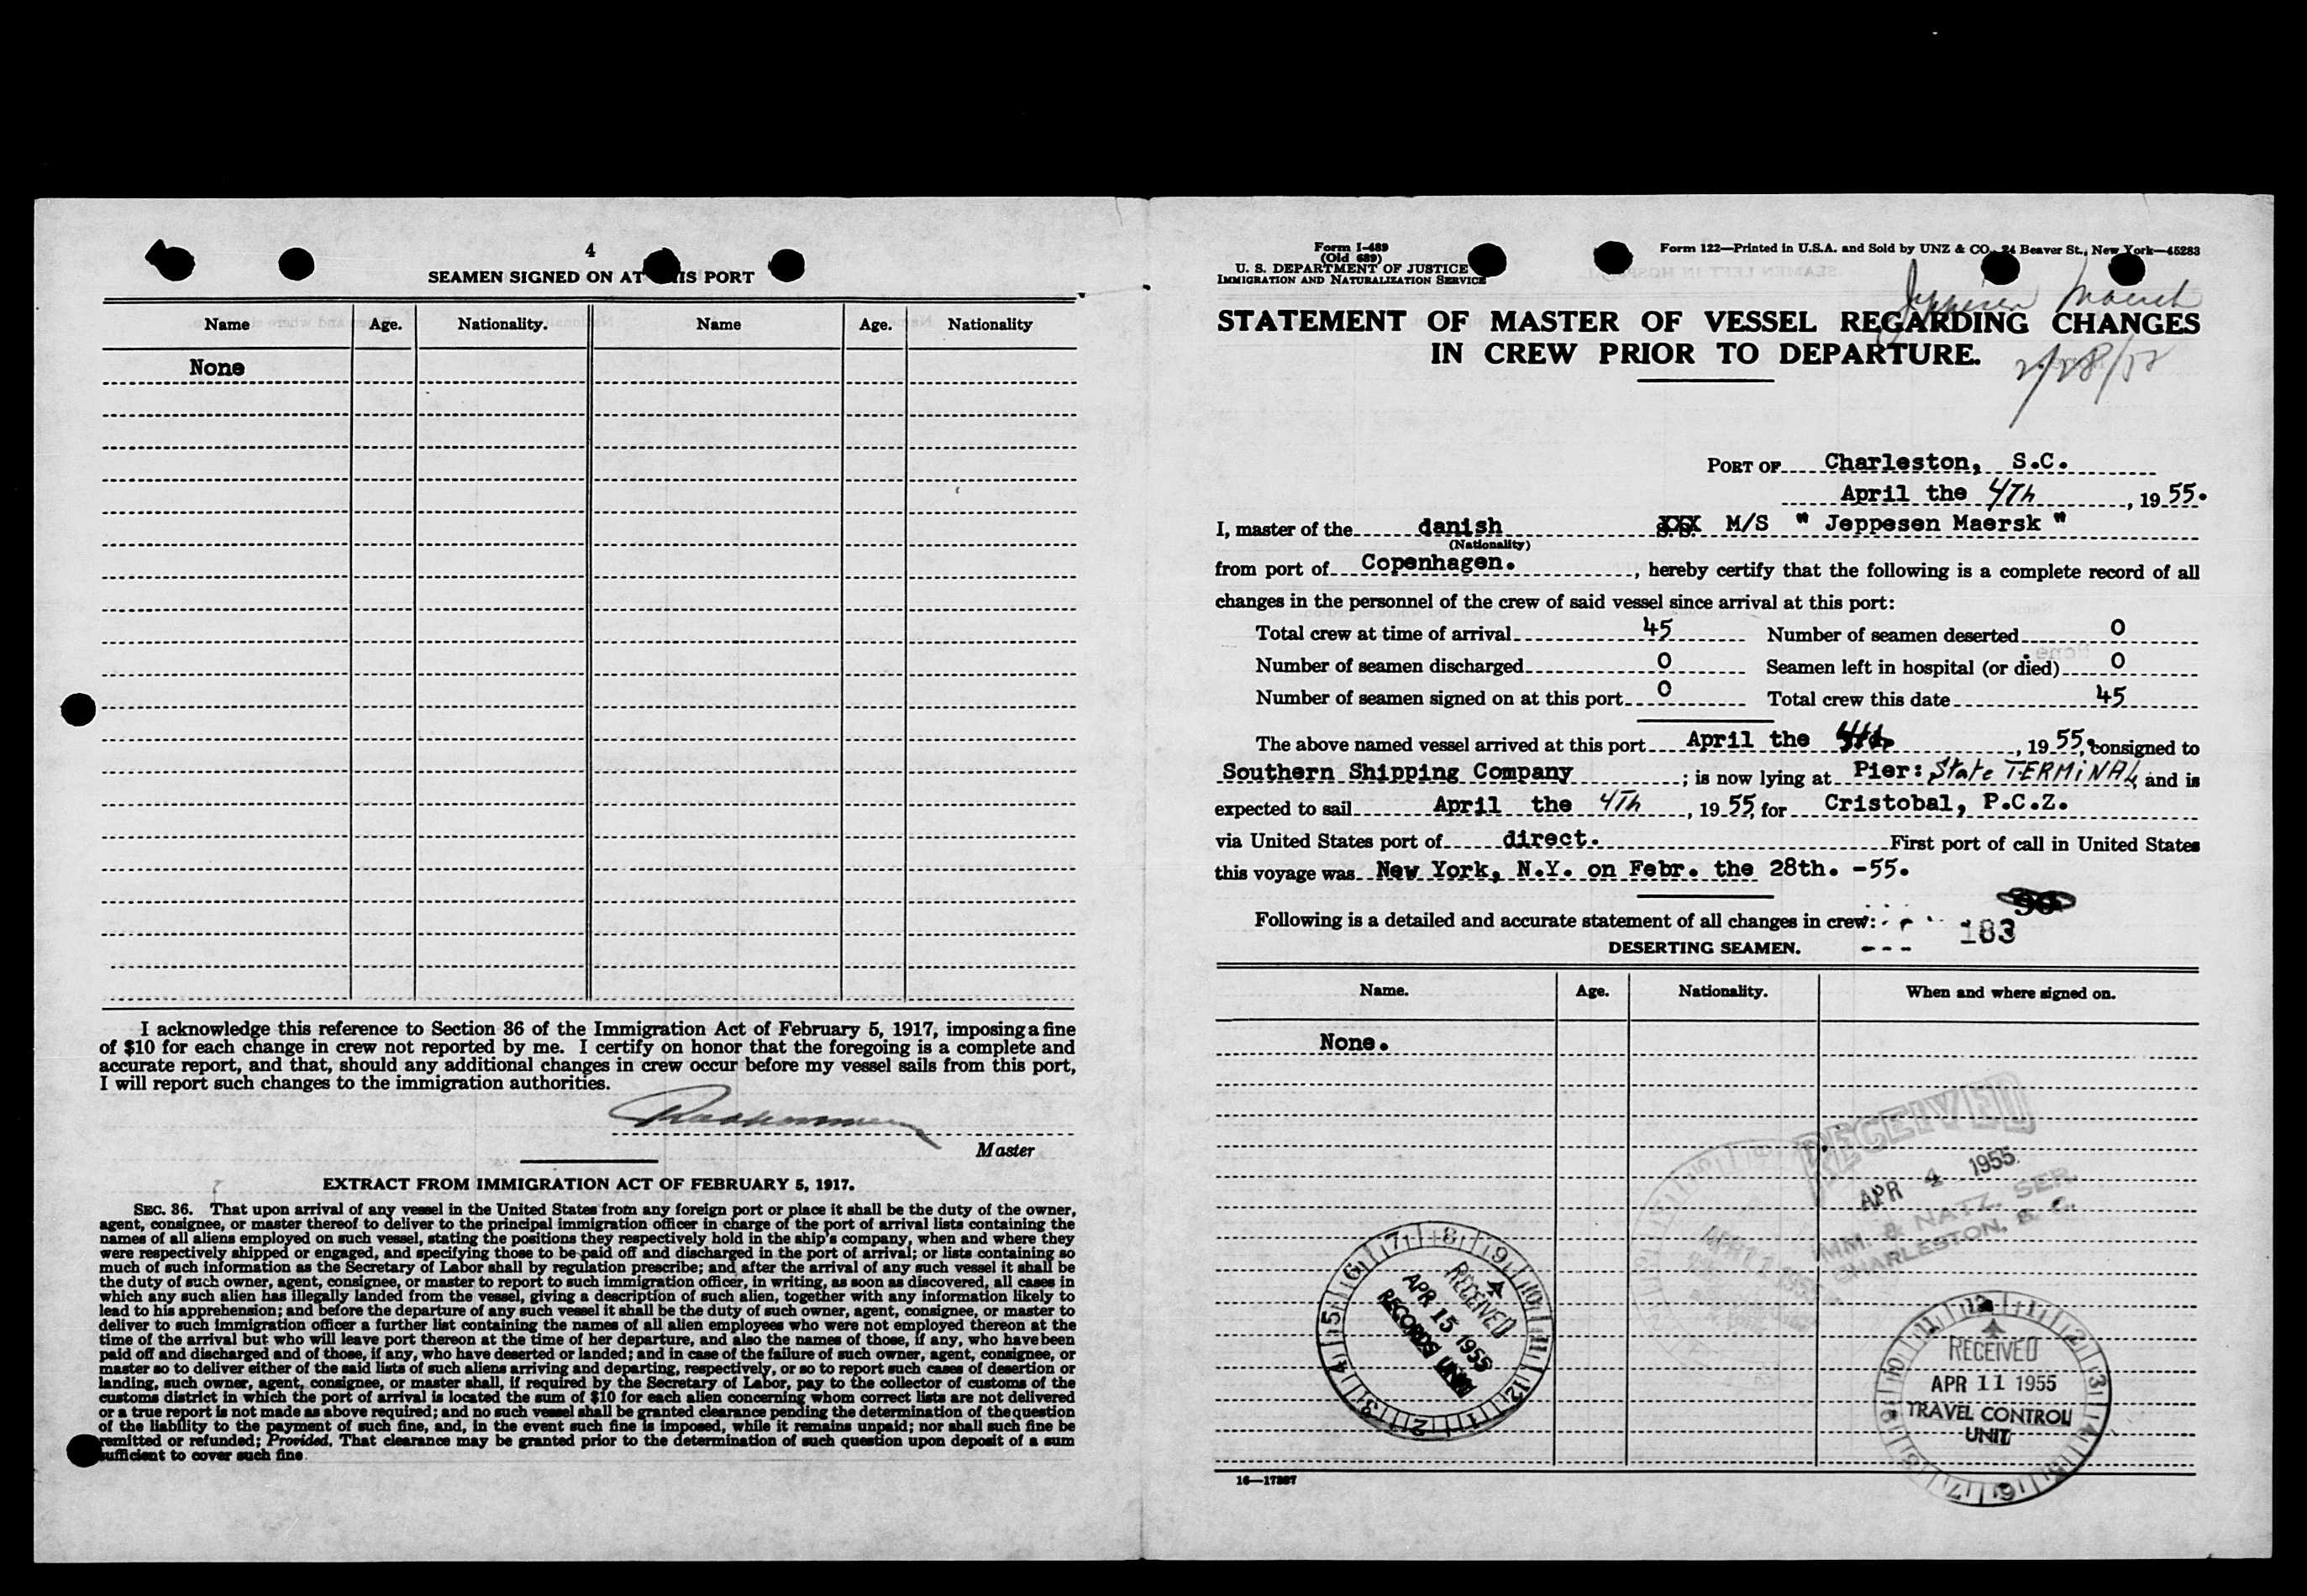 4
SEAMEN SIGNED ON AT THIS PORT
Name Age. Nationality. Name Age. Nationality
None
I acknowledge this reference to Section 36 of the Immigration Act of February 5, 1917, imposing a fine
of $10 for each change in crew not reported by me. I certify on honor that the foregoing is a complete and
accurate report, and that, should any additional changes in crew occur before my vessel sails from this port,
I will report such changes to the immigration authorities.
Master
EXTRACT FROM IMMIGRATION ACT OF FEBRUARY 5, 1917.
SEC. 36. That upon arrival of any vessel in the United States from any foreign port or place it shall be the duty of the owner,
agent, consignee, or master thereof to deliver to the principal immigration officer in charge of the port of arrival lists containing the
names of all aliens employed on such vessel, stating the positions they respectively hold in the ship's company, when and where they
were respectively shipped or engaged, and specifying those to be paid off and discharged in the port of arrival; or lists containing so
much of such information as the Secretary of Labor shall by regulation prescribe; and after the arrival of any such vessel it shall be
the duty of such owner, agent, consignee, or master to report to such immigration officer, in writing, as soon as discovered, all cases in
which any such alien has illegally landed from the vessel, giving a description of such alien, together with any information likely to
lead to his apprehension; and before the departure of any such vessel it shall be the duty of such owner, agent, consignee, or master to
deliver to such immigration officer a further list containing the names of all alien employees who were not employed thereon at the
time of the arrival but who will leave port thereon at the time of her departure, and also the names of those, if any, who have been
paid off and discharged and of those, if any, who have deserted or landed; and in case of the failure of such owner, agent, consignee, or
master so to deliver either of the said lists of such aliens arriving and departing, respectively, or so to report such cases of desertion or
landing, such owner, agent, consignee, or master shall, if required by the Secretary of Labor, pay to the collector of customs of the
customs district in which the port of arrival is located the sum of $10 for each alien concerning whom correct lists are not delivered
or a true report is not made as above required; and no such vessel shall be granted clearance pending the determination of the question
of the liability to the payment of such fine, and, in the event such fine is imposed, while it remains unpaid; nor shall such fine be
remitted or refunded; Provided, That clearance may be granted prior to the determination of such question upon deposit of a sum
sufficient to cover such fine
Form I-489
(Old 689)
U. S. DEPARTMENT OF JUSTICE
IMMIGRATION AND NATURALIZATION SERVICE
Form 122—Printed in U.S.A. and Sold by UNZ & CO., 24 Beaver St., New York—45283
Jeppesen Maersk
STATEMENT OF MASTER OF VESSEL REGARDING CHANGES
IN CREW PRIOR TO DEPARTURE.
PORT OF Charleston, S.C.
April the 4Th, 1955.
I, master of the danish XXX M/S " Jeppesen Maersk "
(Nationality)
from port of Copenhagen., hereby certify that the following is a complete record of all
changes in the personnel of the crew of said vessel since arrival at this port:
Total crew at time of arrival 45 Number of seamen deserted 0
Number of seamen discharged 0 Seamen left in hospital (or died) 0
Number of seamen signed on at this port 0 Total crew this date 45
The above named vessel arrived at this port April the 4th, 1955, consigned to
Southern Shipping Company; is now lying at Pier: State TERMINAL, and is
expected to sail April the 4Th, 1955, for Cristobal, P.C.Z.
via United States port of direct. First port of call in United States
this voyage was New York, N.Y. on Febr. the 28th. -55.
Following is a detailed and accurate statement of all changes in crew:
183
DESERTING SEAMEN.
Name. Age. Nationality. When and where signed on.
None.
RECEIVED
APR 4 1955
IMM. & NATZ. SER.
CHARLESTON, S. C.
RECEIVED
APR 15 1955
RECORDS UNIT
RECEIVED
APR 11 1955
TRAVEL CONTROL
UNIT
16—17887